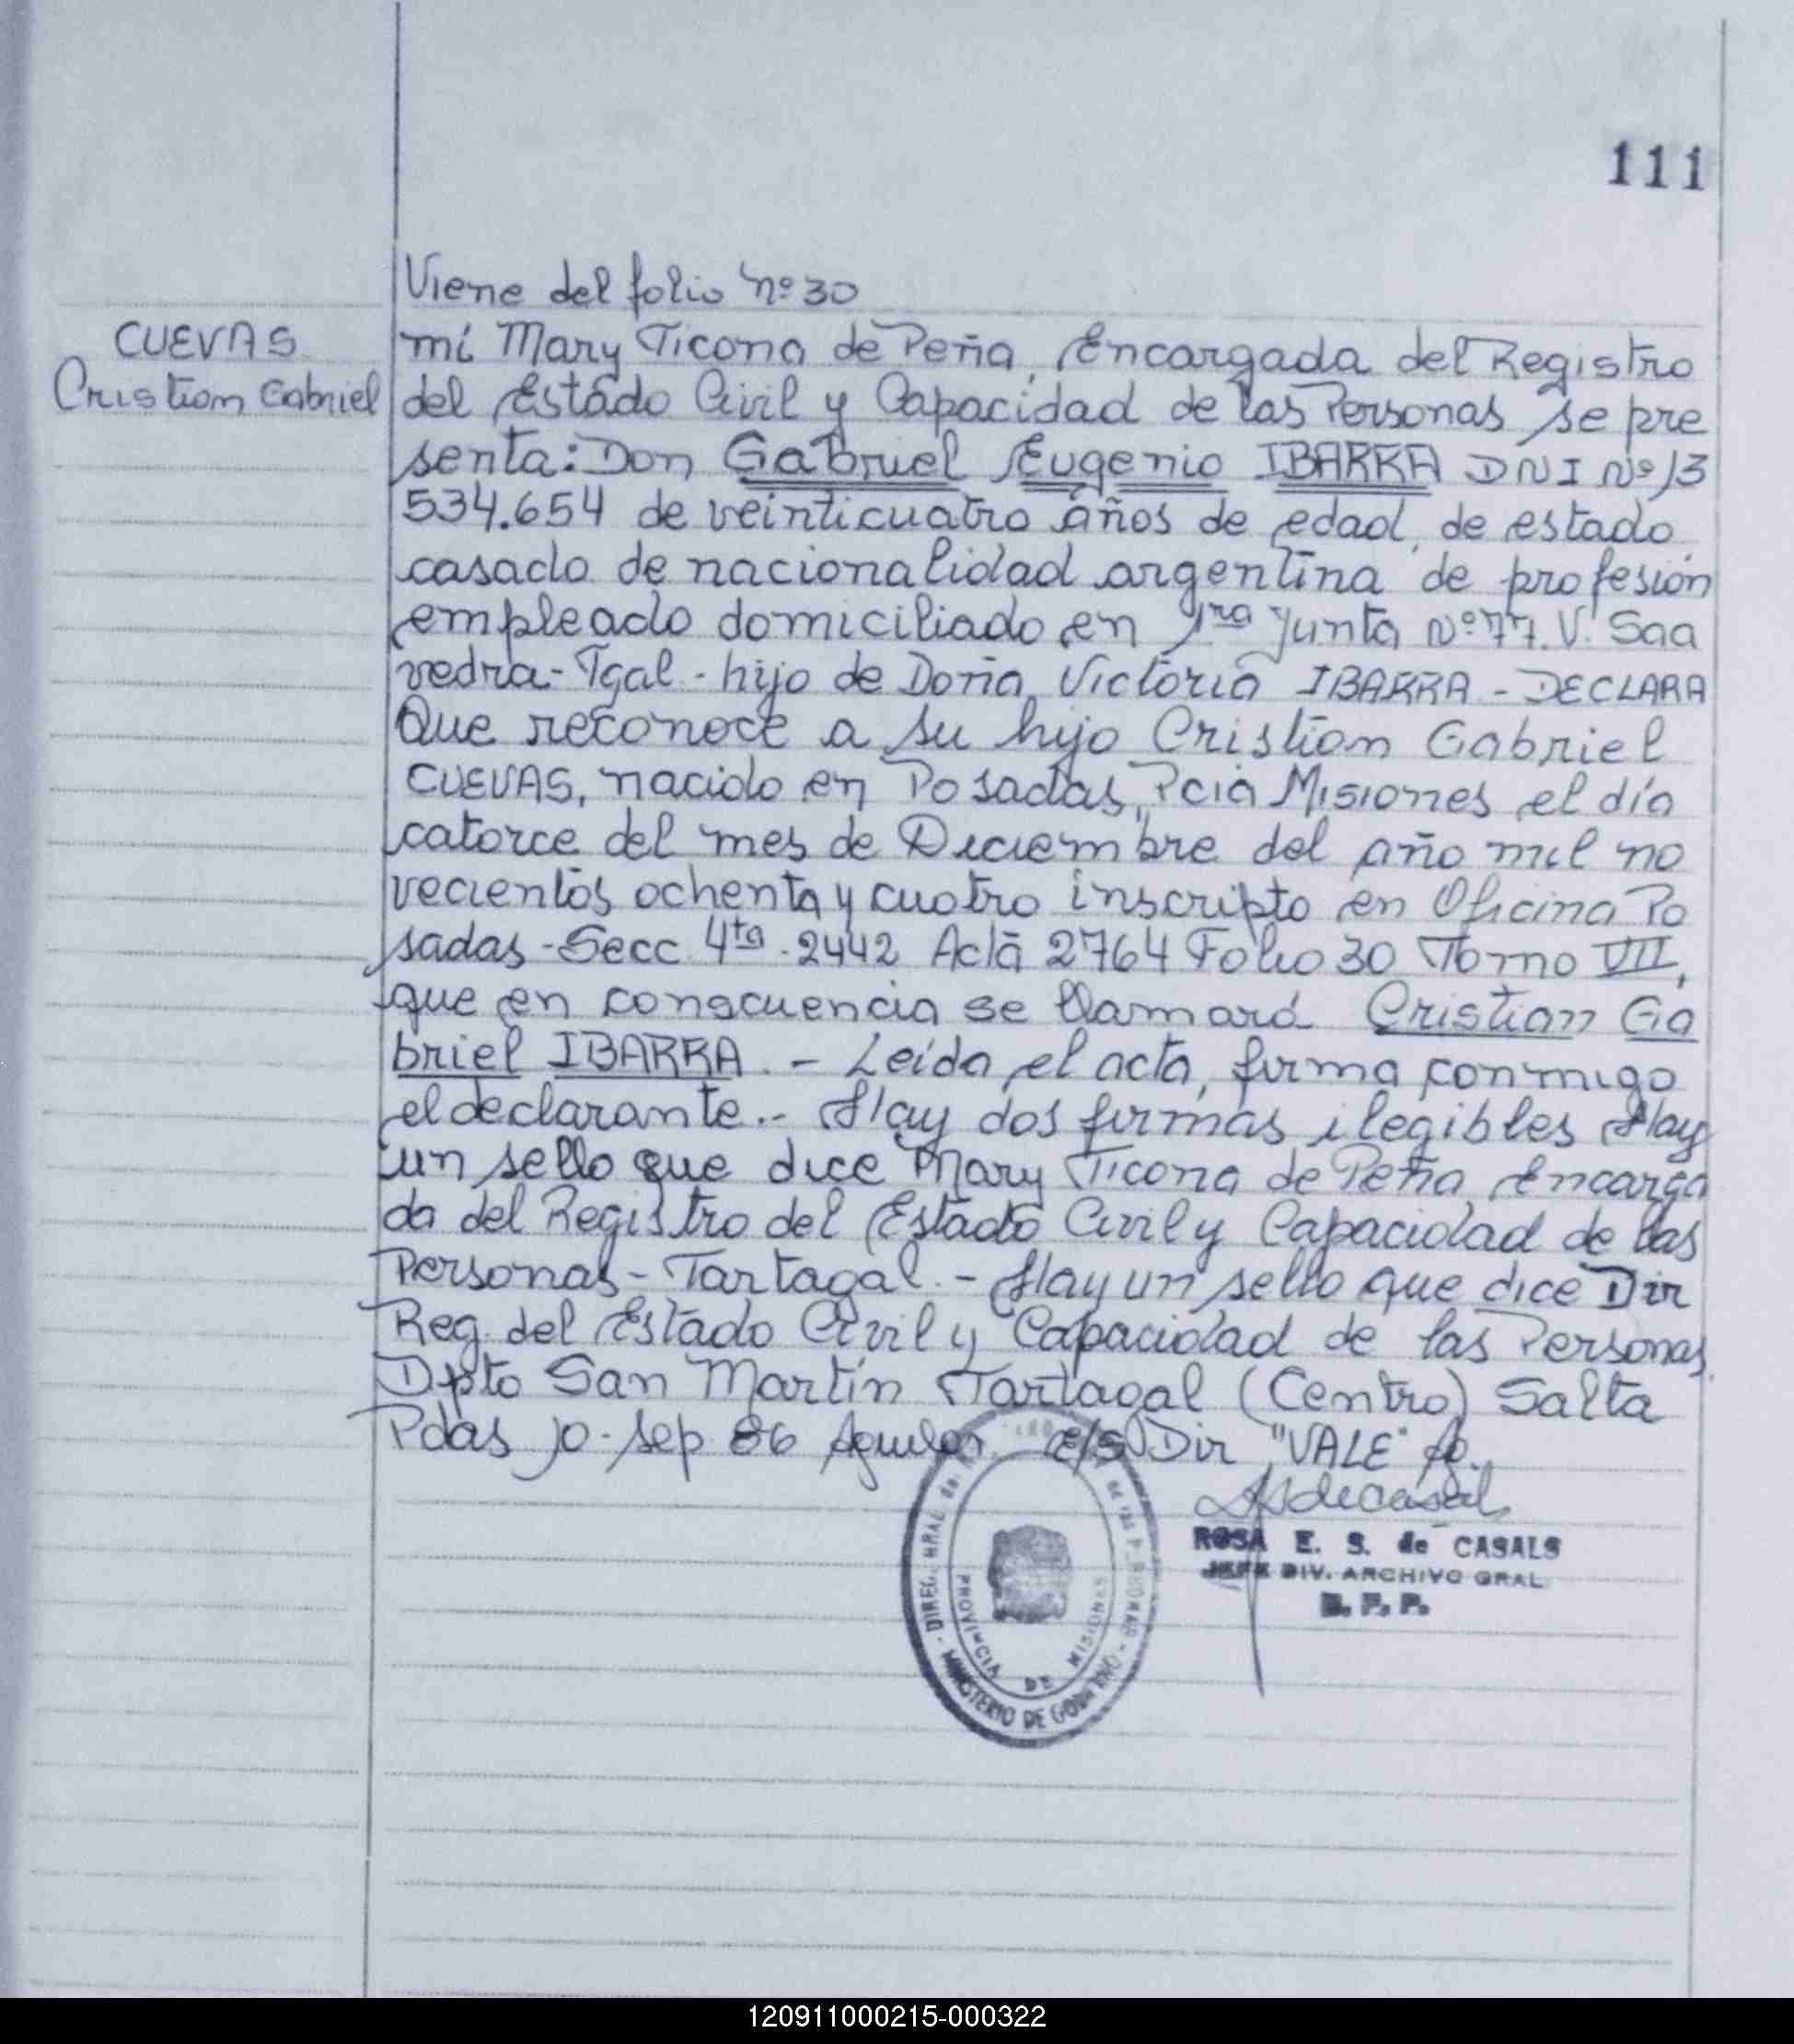 111
Viene del folio Nº 30
CUEVAS
Cristian Gabriel
mí Mary Ticona de Peña, Encargada del Registro
del Estado Civil y Capacidad de las Personas se pre
senta: Don Gabriel Eugenio IBARRA DNI Nº 13
534.654 de veinticuatro años de edad, de estado
casado de nacionalidad argentina de profesión
empleado domiciliado en 1ra Junta Nº 77. V. Saa
vedra - Tgal - hijo de Doña Victoria IBARRA - DECLARA
Que reconoce a su hijo Cristian Gabriel
CUEVAS, nacido en Posadas, Pcia Misiones el día
catorce del mes de Diciembre del año mil no
vecientos ochenta y cuatro inscripto en Oficina Po
sadas - Secc 4ta - 2442 Acta 2764 Folio 30 Tomo VII,
que en conscuencia se llamará Cristian Ga
briel IBARRA. - Leída el acta, firma conmigo
el declarante.- Hay dos firmas ilegibles Hay
un sello que dice Mary Ticona de Peña Encarga
da del Registro del Estado Civil y Capacidad de las
Personas - Tartagal. - Hay un sello que dice Dir
Reg. del Estado Civil y Capacidad de las Personas.
Dpto San Martín Tartagal (Centro) Salta
Pdas 10 - Sep 86 Aguilar e/s Dir "VALE"
ROSA E. S. de CASALS
JEFE DIV. ARCHIVO GRAL
R. P. P.
DIREC. GRAL. DE LAS PERSONAS
MINISTERIO DE GOBIERNO
PROVINCIA DE MISIONES
120911000215-000322